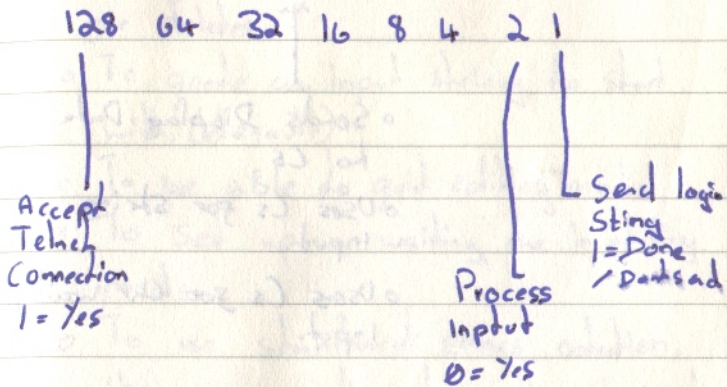 128 64 32 16 8 4 2 1
Accept
Telnet
Connection
1 = Yes
Process
Inptut
0 = Yes
Send login
Sting
1 = Done
/ Dont send